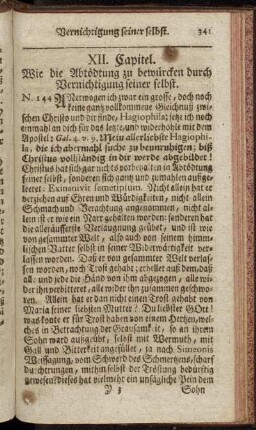 Vernichtigung seiner selbst. 341
XII. Capitel.
Wie die Abtödtung zu bewürcken durch
Vernichtigung seiner selbst.
N. 144 Vermögen ich zwar ein grosse, doch noch
keine gantz vollkommene Gleichnuß zwi-
schen Christo und dir finde, Hagiophila; setze ich noch
einmahl an dich für das letzte, und widerhole mit dem
Apostel: Gal. 4. v. 9. Mein allerliebste Hagiophi-
la, die ich abermahl suche zu beunruhigen; biß
Christus vollständig in dir werde abgebildet!
Christus hat sich gar nicht vorbehalten in Abtödtung
seiner selbst, sondern sich gantz und zumahlen ausge-
leeret: Exinanivit semetipsum. Nicht allein hat er
verziehen auf Ehren und Würdigkeiten, nicht allein
Schmach und Verachtung angenommen, nicht al-
lein ist er wie ein Narr gehalten worden: sonderen hat
die alleräusserste Verlaugnung geübet, und ist wie
von gesammter Welt, also auch von seinem himm-
lischen Vatter selbst in seiner Widerwärtigkeit ver-
lassen worden. Daß er von gesammter Welt verlas-
sen worden, noch Trost gehabt; erhellet aus dem, daß
all- und jede die Händ von ihm abgezogen, alle wi-
der ihn arbeitet, alle wider ihn zusammen geschwo-
ren. Allein hat er dan nicht einen Trost gehabt von
Maria seiner liebsten Mutter? Du liebster GOtt!
was konte er für Trost haben von einem Hertzen, wel-
ches in Betrachtung der Grausamkeit, so an ihrem
Sohn ward ausgeübt, selbst mit Wermuth, mit
Gall und Bitterkeit angefüllet, ja nach Simeonis
Weissagung, vom Schwerd des Schmertzens, scharf
durchtrungen, mithin selbst der Tröstung bedürftig
gewesen? dieses hat vielmehr ein unsägliche Pein dem
Y 3 Sohn